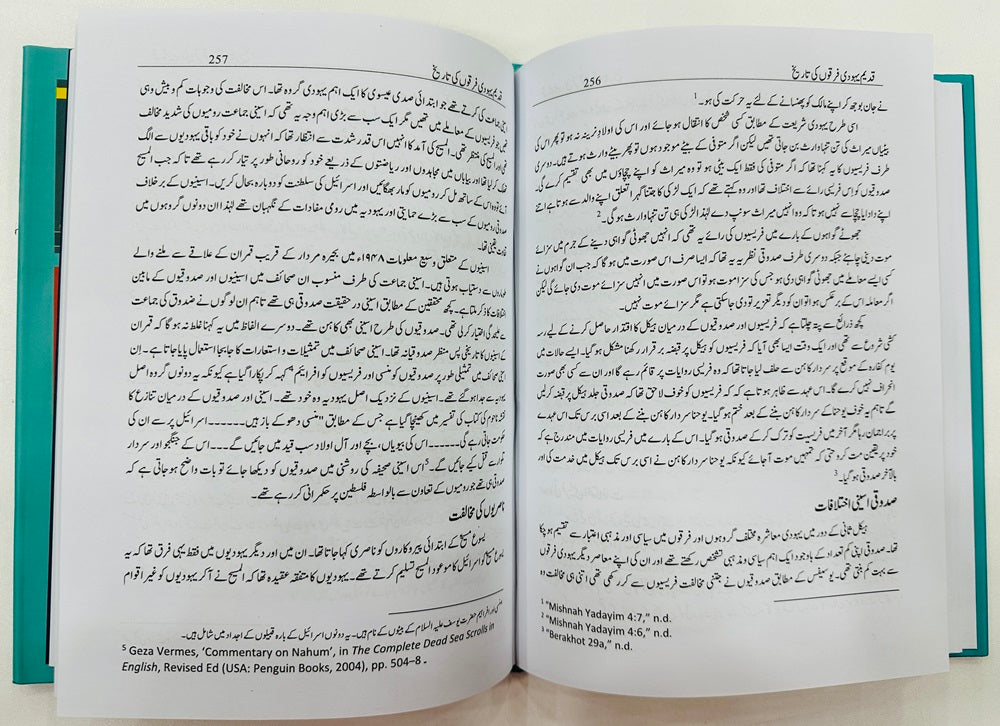 256 قدیم یہودی فرقوں کی تاریخ
نے جان بوجھ کر اپنے مالک کو پھنسانے کے لئے یہ حرکت کی ہو۔1
اسی طرح یہودی شریعت کے مطابق کسی شخص کا انتقال ہو جائے اور اس کی اولاد نرینہ نہ ہو تو پھر اس کی
بیٹیاں میراث کی تن تنہا وارث بن جاتی تھیں لیکن اگر متوفی کے بیٹے موجود ہوں تو پھر بیٹے وارث ہوتے ہیں۔ دوسری
طرف فریسیوں کا یہ کہنا تھا کہ اگر متوفی کی فقط ایک بیٹی ہو تو وہ میراث کو اپنے چچاؤں میں بھی تقسیم کرے گی۔
صدوقیوں کو اس فریسی رائے سے اختلاف تھا اور وہ کہتے تھے کہ ایک لڑکی کا جتنا گہرا تعلق اپنے والد سے ہوتا ہے اتنے
اپنے دادا یا چچا سے نہیں ہوتا کہ وہ انہیں میراث سونپ دے لہٰذا لڑکی ہی تن تنہا وارث ہو گی۔2
جھوٹے گواہوں کے بارے میں فریسیوں کی رائے یہ تھی کہ انہیں جھوٹی گواہی دینے کے جرم میں سزائے
موت دینی چاہئے جبکہ دوسری طرف صدوقی نظریہ یہ تھا کہ ایسا صرف اس صورت میں ہو گا کہ جب ان گواہوں نے
کسی ایسے معاملے میں جھوٹی گواہی دی ہو جس کی سزا موت ہو تو اس صورت میں انہیں سزائے موت دی جائے گی لیکن
اگر معاملہ اس کے برعکس ہو تو ان کو دیگر تعزیر تو دی جاسکتی ہے مگر سزائے موت نہیں۔
کچھ ذرائع سے پتہ چلتا ہے کہ فریسیوں اور صدوقیوں کے درمیان ہیکل کا اقتدار حاصل کرنے کے لیے رسہ
کشی شروع سے تھی اور ایک وقت ایسا بھی آیا کہ فریسیوں کو ہیکل پر قبضہ برقرار رکھنا مشکل ہو گیا۔ ایسے حالات میں
یوم کفارہ کے موقع پر سردار کاہن سے حلف لیا جاتا تھا کہ وہ فریسی روایات پر قائم رہے گا اور ان سے کسی بھی صورت
انحراف نہیں کرے گا۔ اس عہد سے ظاہر ہوتا ہے کہ فریسیوں کو خوف لاحق تھا کہ صدوقی جلد ہیکل پر قبضہ کر لیں
گے تاہم یہ خوف یوحنا کے سردار کاہن بننے کے بعد ختم ہو گیا۔ یوحنا سردار کاہن بننے کے بعد اسی برس تک اس عہدے
پر براجمان رہا مگر آخر میں فریسیت کو ترک کر کے صدوقی ہو گیا۔ اس کے بارے میں فریسی روایات میں مندرج ہے کہ
خود پر یقین مت کرو حتی کہ تمہیں موت آجائے کیونکہ یوحنا سردار کاہن نے اسی برس تک ہیکل میں خدمت کی اور
بالآخر صدوقی ہو گیا۔3
صدوقی اسینی اختلافات
ہیکل ثانی کے دور میں یہودی معاشرہ مختلف گروہوں اور فرقوں میں سیاسی اور مذہبی اعتبار سے تقسیم ہو چکا
تھا۔ صدوقی اپنی کم تعداد کے باوجود ایک اہم سیاسی و مذہبی تشخص رکھتے تھے اور ان کی اپنے معاصر دیگر یہودی فرقوں
سے بہت کم بنتی تھی۔ یوسیفس کے مطابق صدوقیوں نے جتنی مخالفت فریسیوں سے کر رکھی تھی اتنی ہی مخالفت وہ
1 "Mishnah Yadayim 4:7," n.d.
2 "Mishnah Yadayim 4:6," n.d.
3 "Berakhot 29a," n.d.
257 قدیم یہودی فرقوں کی تاریخ
اسینی جماعت کی کرتے تھے جو ابتدائی صدی عیسوی کا ایک اہم یہودی گروہ تھا۔ اس مخالفت کی وجوہات کم و بیش وہی
تھیں جو فریسیوں کے معاملے میں تھیں مگر ایک سب سے بڑی اہم وجہ یہ تھی کہ اسینی جماعت رومیوں کی شدید مخالف
تھی اور المسیح کی منتظر تھی۔ المسیح کی آمد کا انہیں اس قدر شدت سے انتظار تھا کہ انہوں نے خود کو باقی یہودیوں سے الگ
تھلگ کر لیا تھا اور بیاباں میں مجاہدوں اور ریاضتوں کے ذریعے خود کو روحانی طور پر تیار کر رہے تھے تا کہ جب المسیح
آئے تو وہ اس کے ساتھ مل کر رومیوں کو مار بھگائیں اور اسرائیل کی سلطنت کو دوبارہ بحال کریں۔ اسینیوں کے برخلاف
صدوقی رومیوں کے سب سے بڑے حمایتی اور یہودیہ میں رومی مفادات کے نگہبان تھے لہٰذا ان دونوں گروہوں میں
یقینی تھا۔
اسینیوں کے متعلق وسیع معلومات ۱۹۴۸ء میں بحیرہ مردار کے قریب قمران کے علاقے سے ملنے والے
طوماروں سے دستیاب ہوئی ہیں۔ اسینی جماعت کی طرف منسوب ان صحائف میں اسینیوں اور صدوقیوں کے مابین
اختلافات کا ذکر ملتا ہے۔ کچھ محققین کے مطابق اسینی در حقیقت صدوقی ہی تھے تاہم ان لوگوں نے صدوق کی جماعت
سے علیحدگی اختیار کر لی تھی۔ صدوقیوں کی طرح اسینی بھی کاہن تھے۔ دوسرے الفاظ میں یہ کہنا غلط نہ ہو گا کہ قمران
کے اسینیوں کا تاریخی پس منظر صدوقیانہ تھا۔ اسینی صحائف میں تمثیلات و استعارات کا جا بجا استعمال پایا جاتا ہے۔ اِن
اسینی صحائف میں تمثیلی طور پر صدوقیوں کو منسی اور فریسیوں کو افرائیم4 کہہ کر پکارا گیا ہے کیونکہ یہ دونوں گروہ اصل
یہودیہ سے جدا ہو گئے تھے۔ اسینیوں کے نزدیک اصل یہودیہ وہ خود تھے۔ اسینی اور صدوقیوں کے درمیان تنازع کا
نقشہ ناحوم کی کتاب کی تفسیر میں کھینچا گیا ہے جس کے مطابق "منسی دھوکے باز ہیں۔۔۔۔۔۔ اسرائیل پر سے ان کی
حکومت جاتی رہے گی۔۔۔۔۔ اس کی بیویاں، بچے اور آل اولاد سب قید میں جائیں گے۔۔۔ اس کے جنگجو اور سردار
تلوار سے قتل کیے جائیں گے۔5 اس اسینی صحیفہ کی روشنی میں صدوقیوں کو دیکھا جائے تو بات واضح ہو جاتی ہے کہ
صدوقی ہی تھے جو رومیوں کے تعاون سے بالواسطہ فلسطین پر حکمرانی کر رہے تھے۔
ناصریوں کی مخالفت
یسوع مسیح کے ابتدائی پیروکاروں کو ناصری کہا جاتا تھا۔ ان میں اور دیگر یہودیوں میں فقط یہی فرق تھا کہ یہ
یسوع مسیح کو اسرائیل کا موعود المسیح تسلیم کرتے تھے۔ یہودیوں کا متفقہ عقیدہ تھا کہ المسیح نے آکر یہودیوں کو غیر اقوام
منسی اور افرائیم حضرت یوسف علیہ السلام کے بیٹوں کے نام ہیں۔ یہ دونوں اسرائیل کے بارہ قبیلوں کے اجداد میں شامل ہیں۔
5 Geza Vermes, 'Commentary on Nahum', in The Complete Dead Sea Scrolls in
English, Revised Ed (USA: Penguin Books, 2004), pp. 504–8 ۔